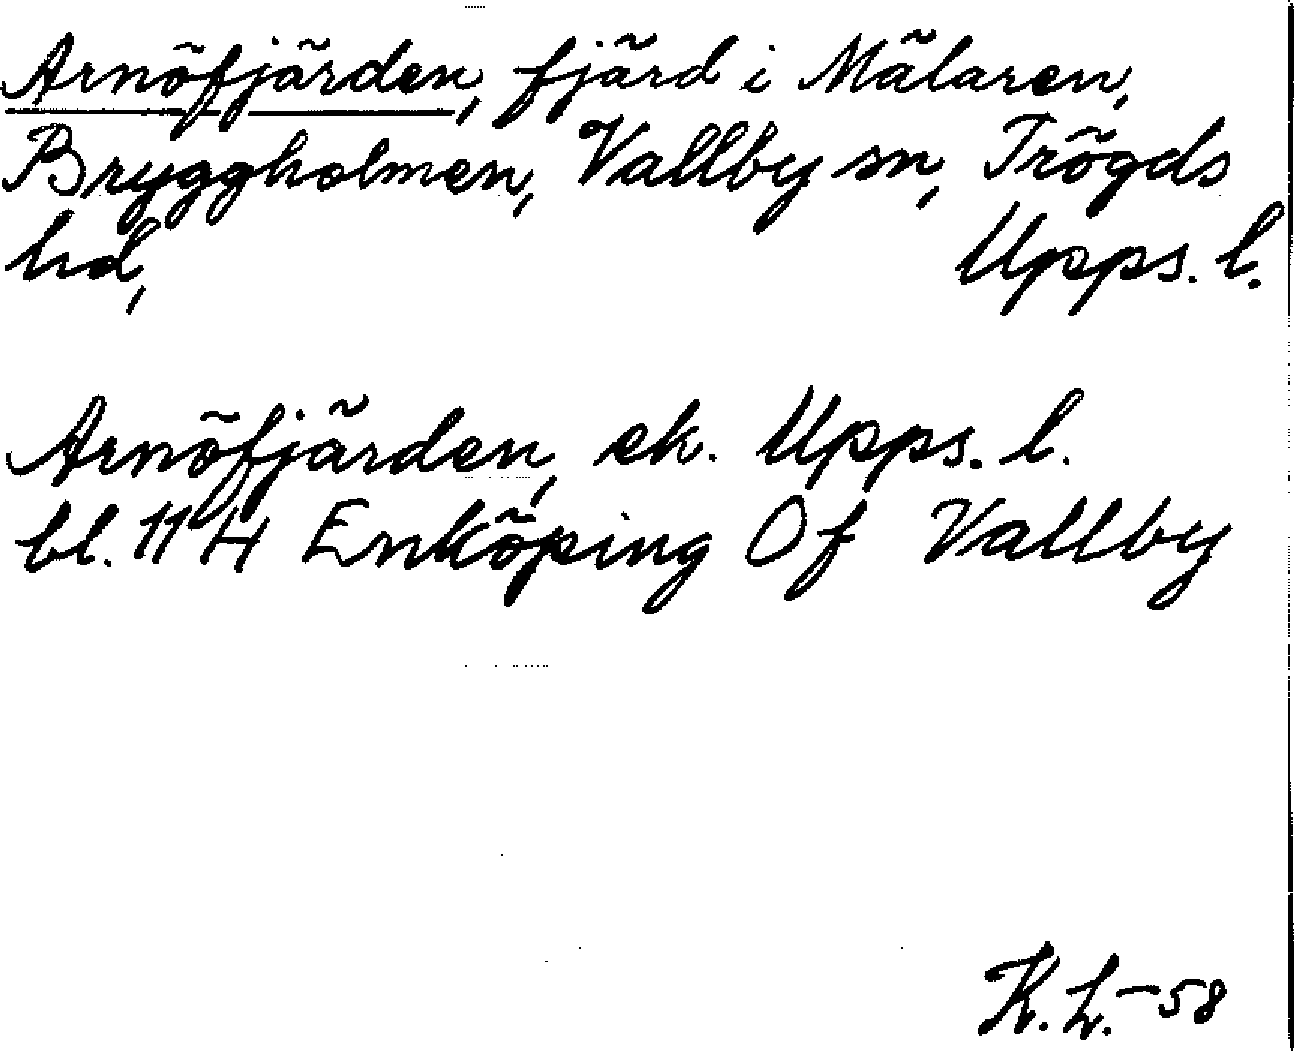 Arnöfjärden, fjärd i Mälaren,
Bryggholmen, Vallby sn, Trögds
hd, Upps. l.
Arnöfjärden, ek. Upps. l.
bl. 114 Enköping Of Vallby
K. L. -58